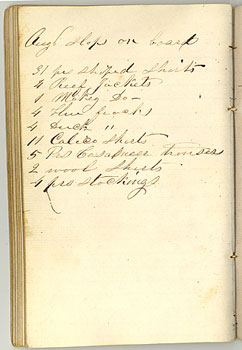 Aug Slops on board
31 prs striped Shirts
4 Reef Jackets
1 Monkey Do -
4 Thin frocks
4 Duck "
11 Calico Shirts
5 Prs Cassimeer trousers
2 wool Shirts
4 prs stockings